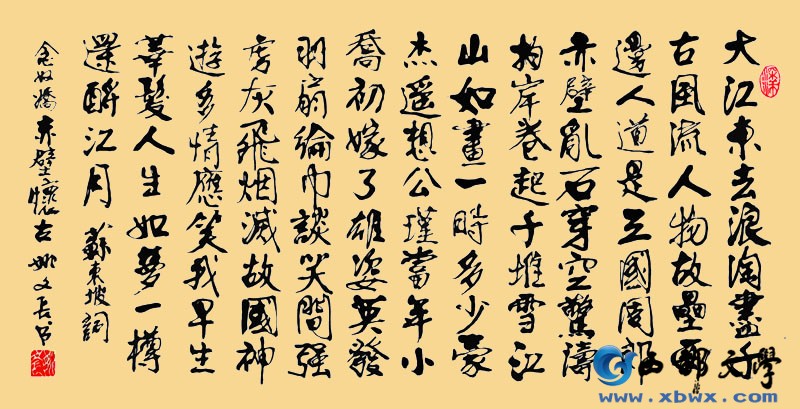 大江東去浪淘盡千
古風流人物故壘西
邊人道是三國周郎
赤壁亂石穿空驚濤
拍岸卷起千堆雪江
山如畫一時多少豪
杰遥想公瑾當年小
喬初嫁了雄姿英發
羽扇綸巾談笑間强
虜灰飛烟滅故國神
遊多情應笑我早生
華髮人生如夢一樽
還酹江月 蘇東坡詞
念奴嬌赤壁懷古
學
www.xbwx.com